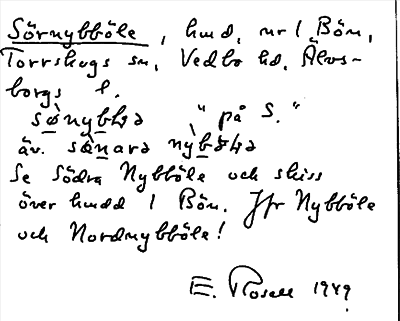 Sörnybböle, hmd, nr 1 Bön,
Torrskogs sn, Vedbo hd, Älvs-
borgs l.
"på S."
äv.
Se Södra Nybböle och skiss
över hmdd 1 Bön. Jfr Nybböle
och Nordnybböle!
E. Rosell 1949.